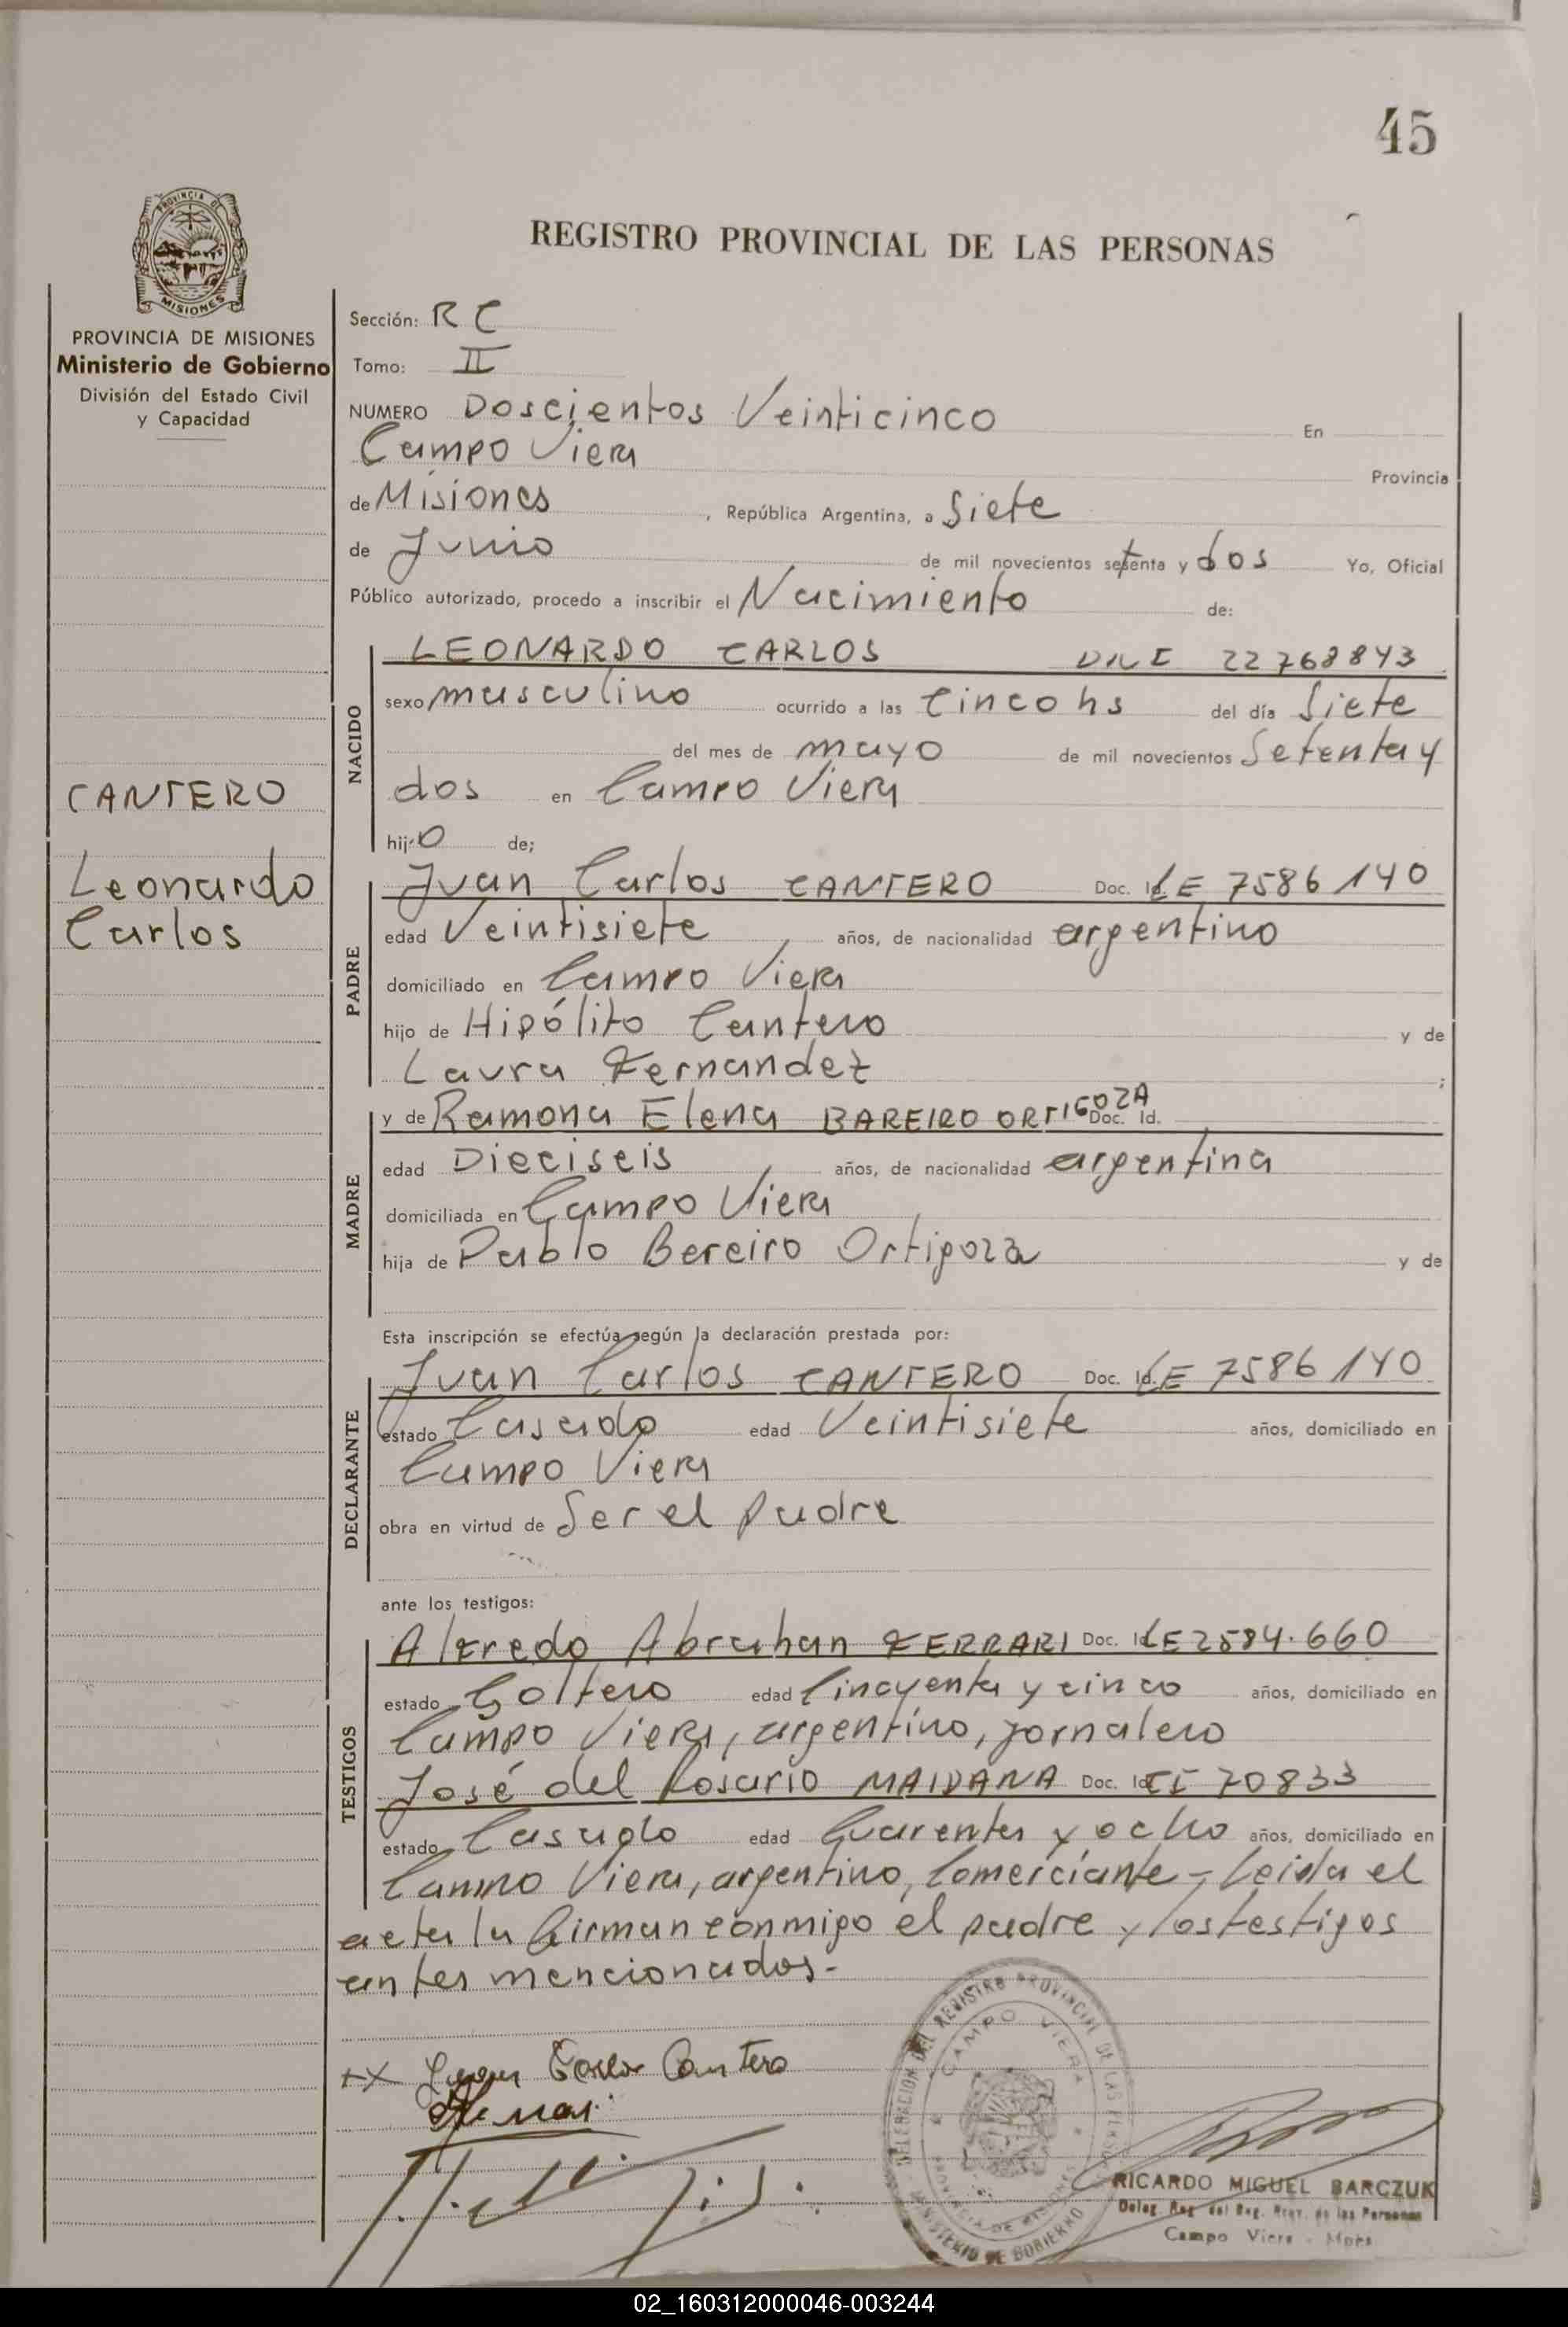 45
REGISTRO PROVINCIAL DE LAS PERSONAS
PROVINCIA DE MISIONES
PROVINCIA DE MISIONES
Ministerio de Gobierno
División del Estado Civil
y Capacidad
CANTERO
Leonardo
Carlos
Sección: R C
Tomo: II
NUMERO Doscientos Veinticinco En
Campo Viera Provincia
de Misiones, República Argentina, a Siete
de Junio de mil novecientos setenta y dos Yo, Oficial
Público autorizado, procedo a inscribir el Nacimiento de:
NACIDO
LEONARDO CARLOS DNI 22768843
sexo masculino ocurrido a las Cinco hs del día Siete
del mes de mayo de mil novecientos Setenta y
dos en Campo Viera
hijo de;
PADRE
Juan Carlos CANTERO Doc. Id. LE 7586140
edad Veintisiete, años, de nacionalidad argentino
domiciliado en Campo Viera
hijo de Hipólito Cantero y de
Laura Fernandez;
MADRE
y de Ramona Elena BAREIRO ORTIGOZA Doc. Id.
edad Dieciseis, años, de nacionalidad argentina
domiciliada en Campo Viera,
hija de Pablo Bereiro Ortigoza y de
Esta inscripción se efectúa según la declaración prestada por:
DECLARANTE
Juan Carlos CANTERO Doc. Id. LE 7586140
estado Casado edad Veintisiete años, domiciliado en
Campo Viera
obra en virtud de Ser el padre
ante los testigos:
TESTIGOS
Alfredo Abrahan FERRARI Doc. Id. LE 2584.660
estado Soltero edad Cincuenta y cinco años, domiciliado en
Campo Viera, argentino, jornalero
José del Rosario MAIDANA Doc. Id. CI 70833
estado Casado edad Cuarenta y ocho años, domiciliado en
Campo Viera, argentino, Comerciante - Leida el
acta la firman conmigo el padre y los testigos
antes mencionados.-
Juan Carlos Cantero
DELEGACION DEL REGISTRO PROVINCIAL DE LAS PERSONAS
CAMPO VIERA
PROVINCIA DE MISIONES
MINISTERIO DE GOBIERNO
RICARDO MIGUEL BARCZUK
Deleg. Reg. del Reg. Prov. de las Personas
Campo Viera - Mnes
02_160312000046-003244